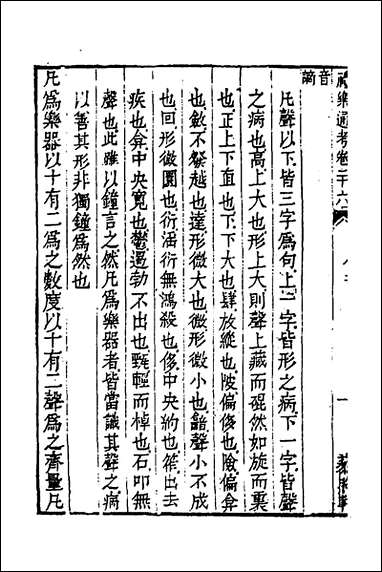 禮樂通考卷二十六
音
謫
凡聲以下皆三字爲句上二字皆形之病下一字皆聲
之病也高上大也形上大則聲上藏而硍然如旋而裏
也正上下直也下下大也肆放縱也陂偏侈也險偏弇
也斂不發越也達形微大也微形微小也韽聲小不成
也回形微圜也衍涵衍無鴻殺也侈中央約也筰出去
疾也弇中央寬也鬱遏勃不出也甄輕而棹也石叩無
聲也此雖以鐘言之然凡爲樂器者皆當議其聲之病
以善其形非獨鐘爲然也
凡爲樂器以十有二爲之數度以十有二聲爲之齊量凡